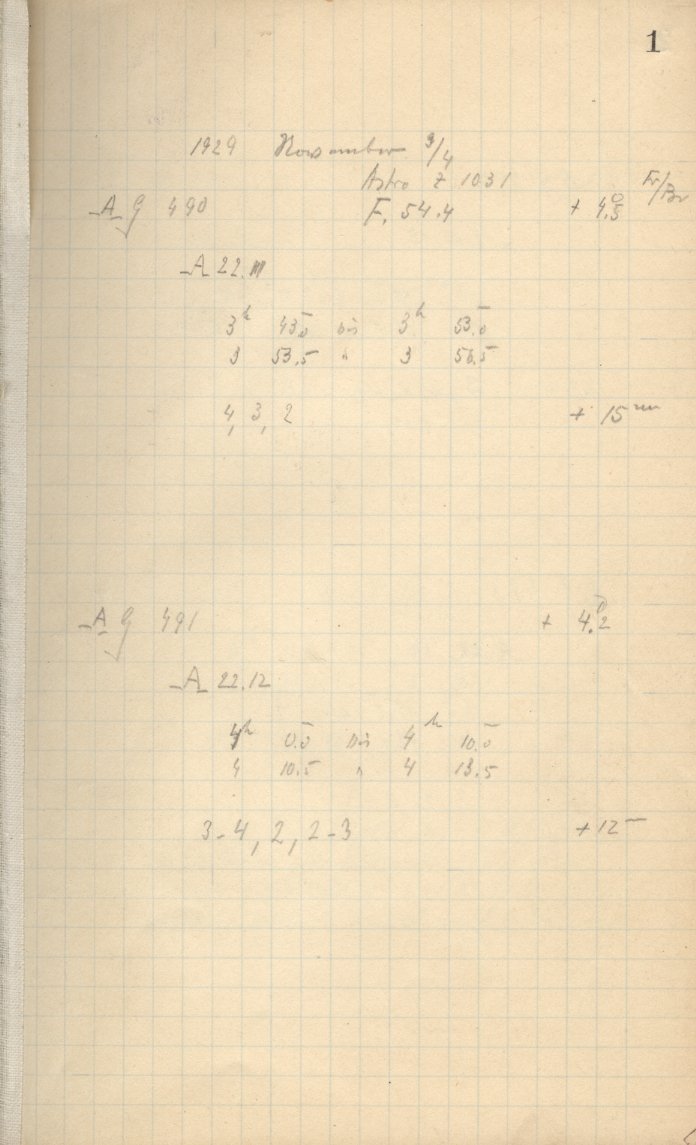 1
1929 November 3/4
Astro Z 1031
AG 490 F. 54.4 + 4.°5 Fr/Br
A 22.11
3h 43.0 bis 3h 53.0
3 53.5 " 3 56.5
4, 3, 2 + 15mm
AG 491 + 4.°2
A 22.12
4h 0.0 bis 4h 10.0
4 10.5 " 4 13.5
3-4, 2, 2-3 + 12m